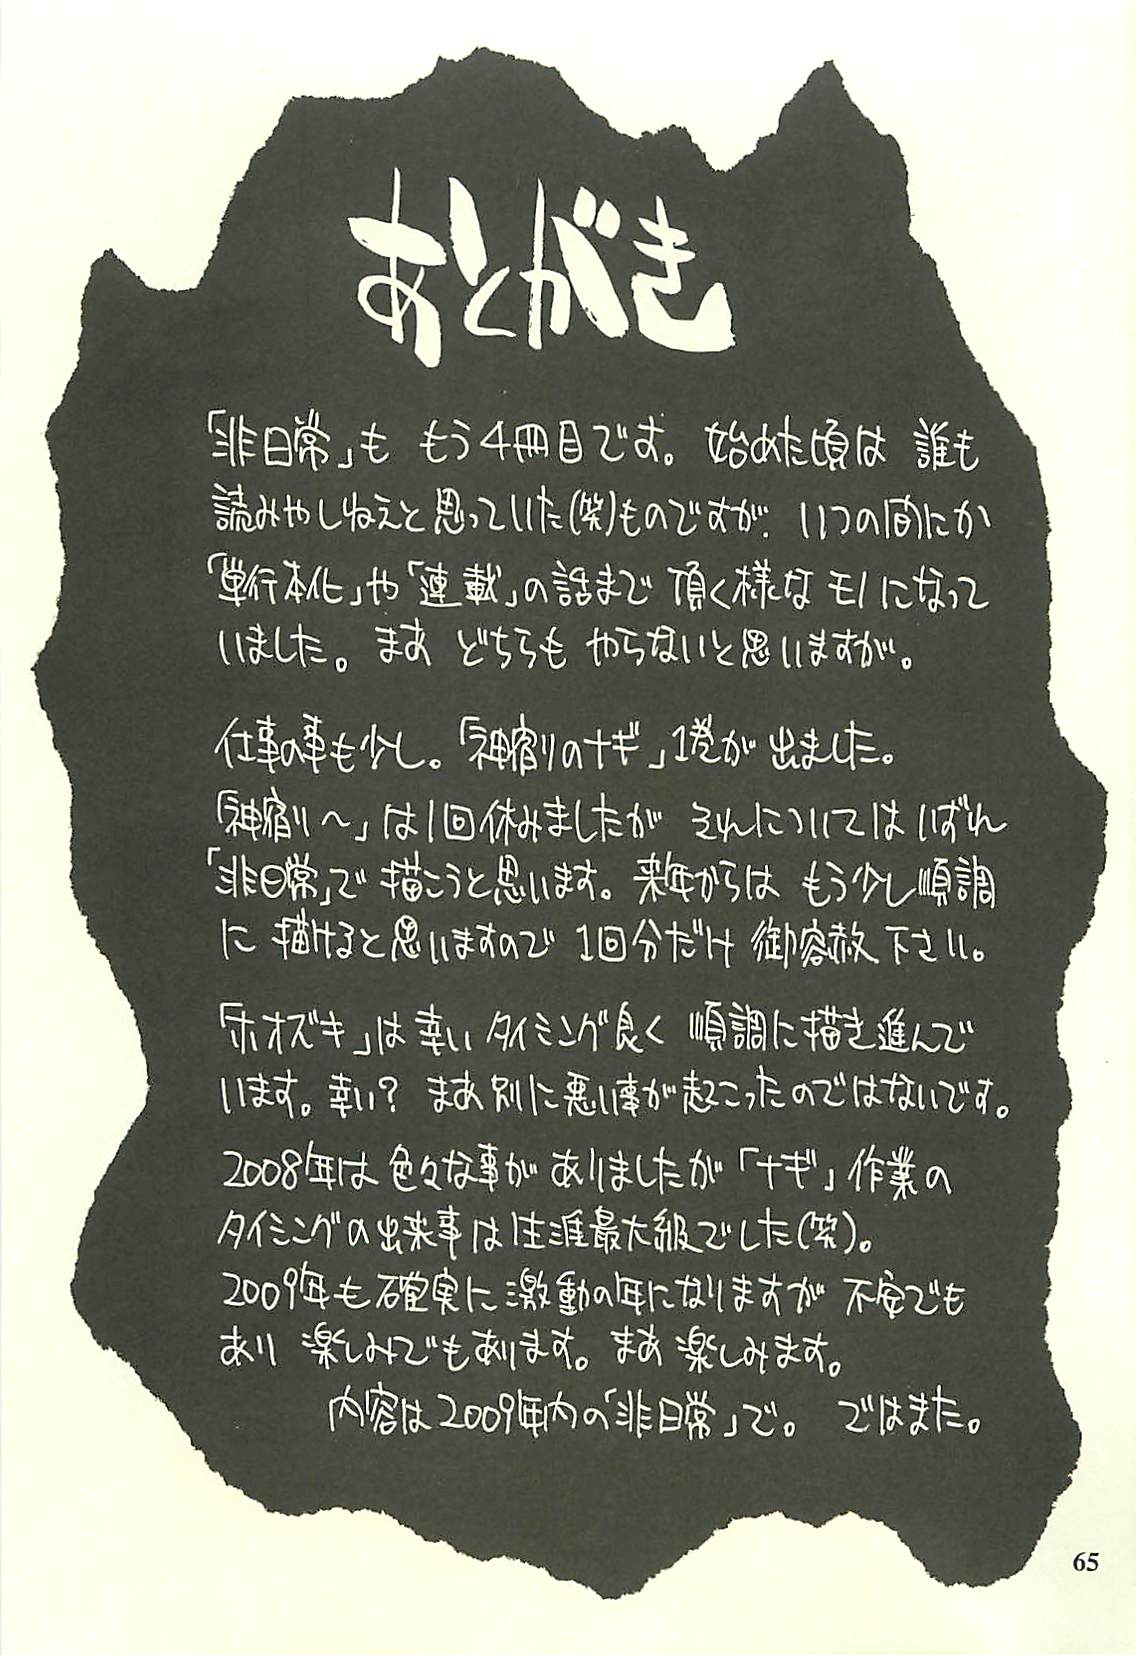 あとがき
「非日常」も もう4冊目です。始めた頃は 誰も
読みやしねえと思っていた(笑)ものですが、いつの間にか
「単行本化」や「連載」の話まで 頂く様な モノになって
いました。まあ どちらも やらないと思いますが。
仕事の事も少し。「神宿りのナギ」1巻が 出ました。
「神宿り〜」は1回休みましたが それについてはいずれ
「非日常」で 描こうと思います。来年からは もう少し順調
に 描けると思いますので 1回分だけ 御容赦 下さい。
「ホオズキ」は幸い タイミング良く 順調に描き進んで
います。幸い? まあ別に悪い事が起こったのではないです。
2008年は 色々な事が ありましたが「ナギ」作業の
タイミングの出来事は生涯最大級でした(笑)。
2009年も 確実に激動の年になりますが 不安でも
あり 楽しみでもあります。まあ 楽しみます。
内容は2009年内の「非日常」で。 ではまた。
65